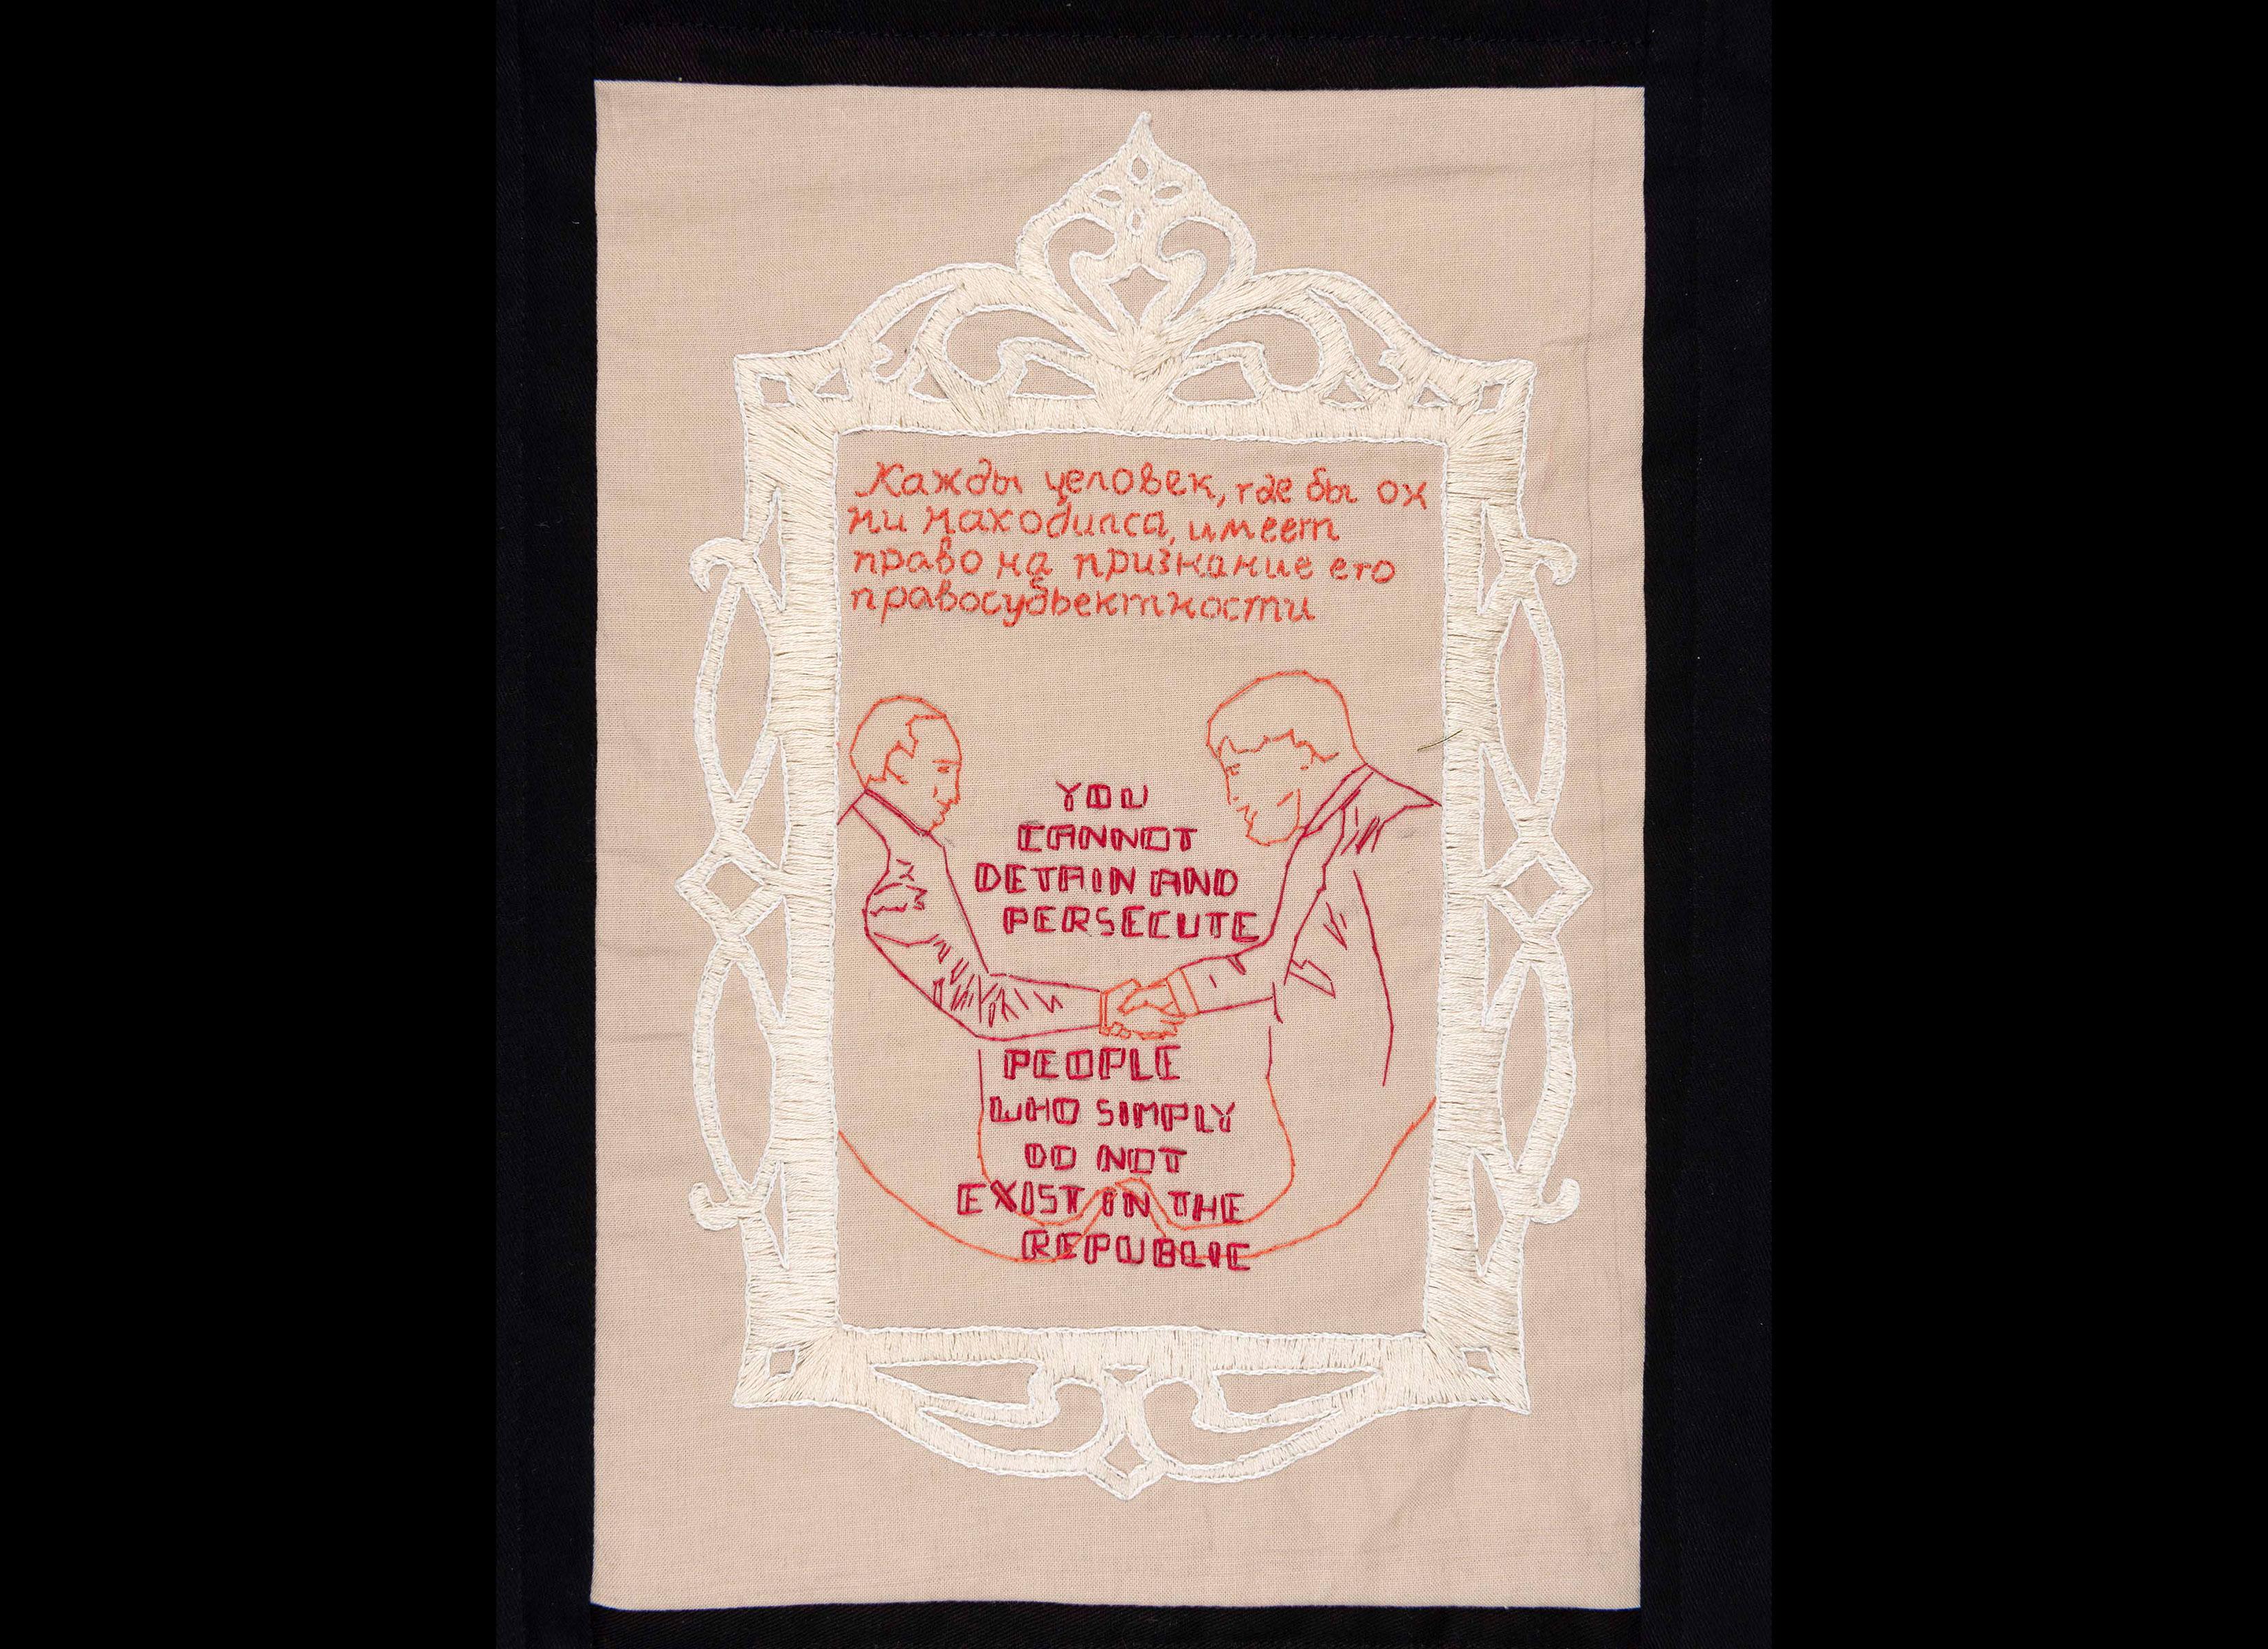 Кажды человек, где бы он
ни находилса, имеет
право на признание его
правосудбектности
YOU
CANNOT
DETAIN AND
PERSECUTE
PEOPLE
WHO SIMPLY
DO NOT
EXIST IN THE
REPUBLIC